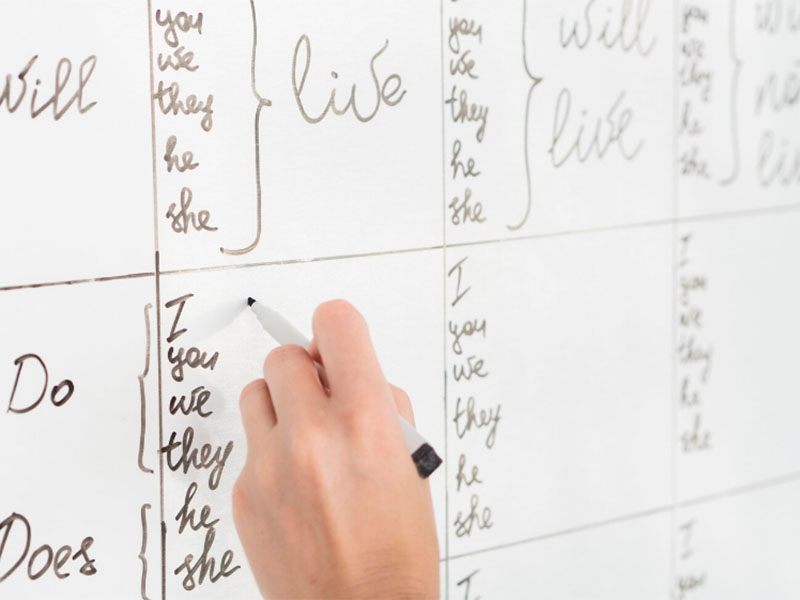 Will
you
we
they
he
she
live
you
we
they
he
she
will
live
you
we
they
he
she
Do
I
you
we
they
Does
he
she
I
you
we
they
he
she
I
you
we
they
he
she
I
I
you